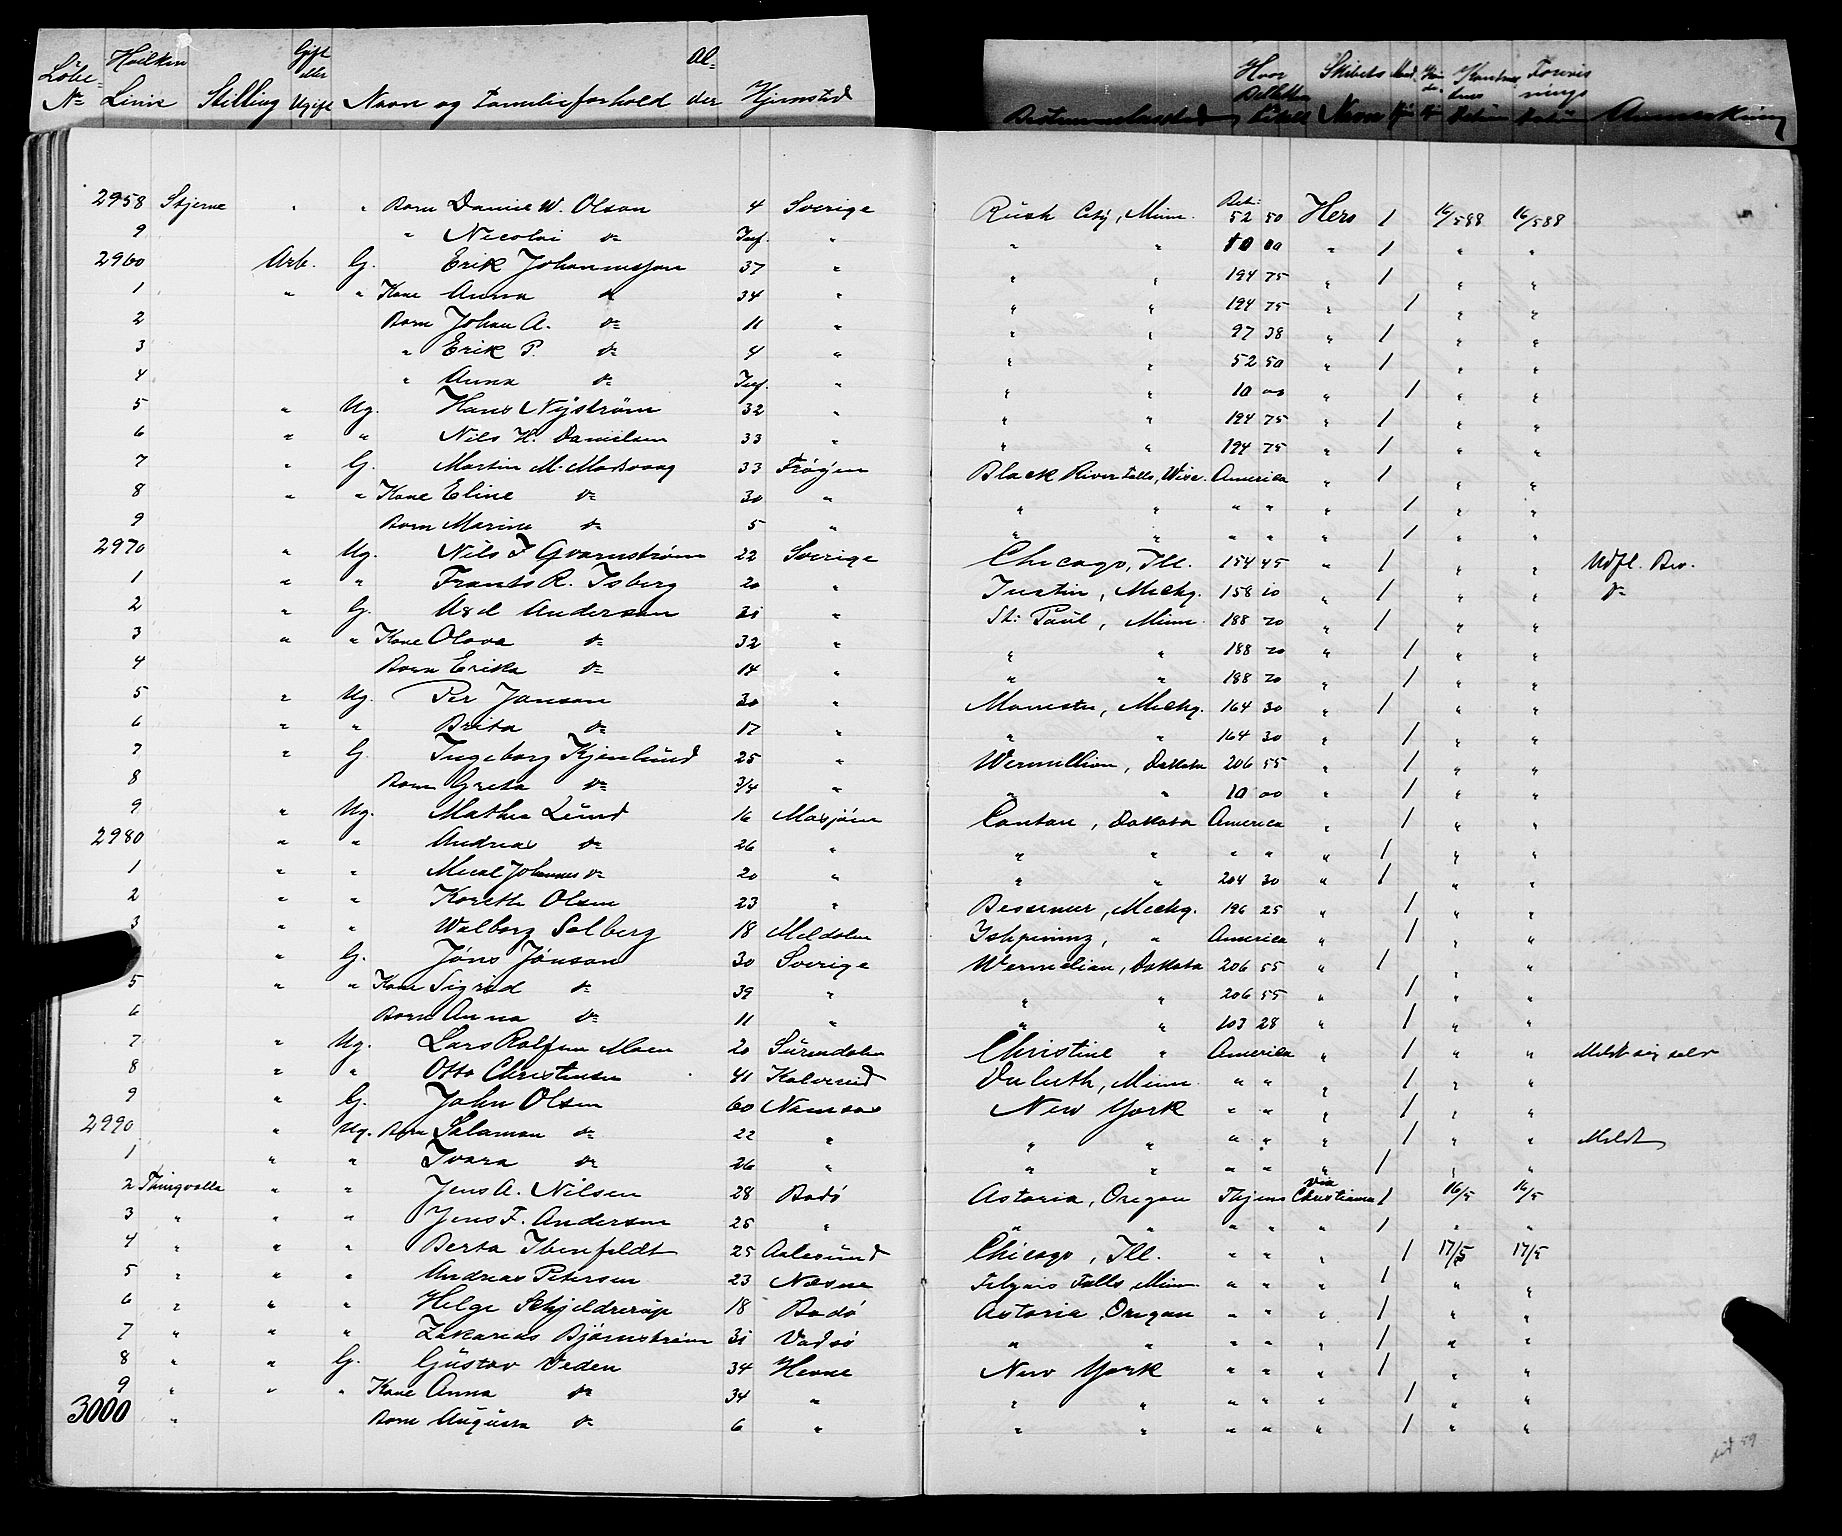 Løbe- N= Hvilken Linie Stilling Gift eller Ugift Navn og Familieforhold Al- der Hjemsted Bestemmelsessted Hvor Billetten Skibets Navn Anmærkning
2958 Stjerne " " Barn Daniel W. Olson 4 Sverige Rush City, Minn. Bet: 52 50 Hero 1 16/5 88 16/5 88
9 " Nicolai do Inf. " " " 10 00 " 1 " "
2960 Arb. G. Erik Johannesson 37 " " " 194 75 " 1 " "
1 " " Kone Anna do 34 " " " 194 75 " 1 " "
2 Barn Johan A. do 11 " " " 97 38 " 1 " "
3 " Erik P. do 4 " " " 52 50 " 1 " "
4 " Anna do Inf. " " " 10 00 " 1 " "
5 " Ug. Hans Nyström 32 " " " 194 75 " 1 " "
6 " " Nils H. Danielsen 33 " " " 194 75 " 1 " "
7 " G. Martin M. 33 Frøyen Black River Falls, Wisc. America " 1 " "
8 " " Kone Eline do 30 " " " " " " 1 " "
9 Barn Marine do 5 " " " " " " 1 " "
2970 " Ug. Nils F Gvarnstrøm 22 Sverige Chicago, Ill. 154 45 " 1 " " Udfl. Bev.
1 " " Frants R. Isberg 20 " Justin, Michg. 158 10 " 1 " " do
2 " G. Anderson 31 " St: Paul, Minn. 188 20 " 1 " "
3 " " Kone Olava do 32 " " " 188 20 " 1 " "
4 Barn Erika do 14 " " " 188 20 " 1 " "
5 " Ug. Per Janson 30 " Manistee, Michg. 164 30 " 1 " "
6 " " Brita do 17 " " " 164 30 " 1 " "
7 " G. Ingeborg Kjenlund 25 " Wermillion, Dakota 206 55 " 1 " "
8 Barn Greta do 3/4 " " " 10 00 " 1 " "
9 " Ug. Mathea Lund 16 Mosjøen Canton, Dakota America " 1 " "
2980 " " Andreas do 26 " " " " " " 1 " "
1 " " Johannes do 20 " " " 204 30 " 1 " "
2 " " Olsen 23 " Bessemer, Michg. 196 25 " 1 " "
3 " " Walborg Solberg 18 Meldalen Ishpeming, " America " 1 " "
" G. Jöns Jönson 30 Sverige Wermelian, Dakota 206 55 " 1 " "
5 " " Kone Sigrid do 39 " " " 206 55 " 1 " "
6 Barn Anna do 11 " " " 103 28 " 1 " "
7 " Ug. Lars Moen 20 Surendalen Christine " America " 1 " " Meldt sig selv
8 " " Otto Christensen 41 Duluth, Minn. " " " 1 " "
9 " G. John Olsen 60 Namsos New York " " " 1 " "
2990 " Ug. Barn Salamon do 22 " " " " " " 1 " " Meldt
1 " " Ivara do 26 " " " " " " 1 " "
2 Thingvalla " " Jens A. Nilsen 28 Bodö Astoria, Oregon Thjem via Christiania 1 16/5 16/5
3 " " " Jens F. Andersen 25 " " " " " " 1 " "
4 " " " Berta Ibenfeldt 25 Aalesund Chicago, Ill. " " " 1 17/5 17/5
5 " " " Andreas Petersen 23 Næsne Falls, Minn. " " " 1 " "
6 " " " Helge Schjelderup 18 Bodö Astoria, Oregon " " " 1 " "
7 " " " Zakarias Bjørnstrøm 31 Vadsö " " " " " 1 " "
8 " " G. Gustav Veden 34 Hevne New York " " " 1 " "
9 " " " Kone Anna do 34 " " " " " " 1 " "
3000 " Barn Augusta do 6 " " " " " " 1 " "